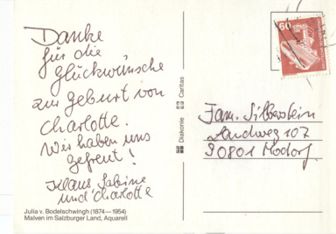 Danke
für die
Glückwünsche
zur Geburt von
Charlotte.
Wir haben uns
gefreut!
Klaus, Sabine
und Charlotte
Julia v. Bodelschwingh (1874—1954)
Malven im Salzburger Land, Aquarell
Diakonie
Caritas
60
Fam. Silberstein
107